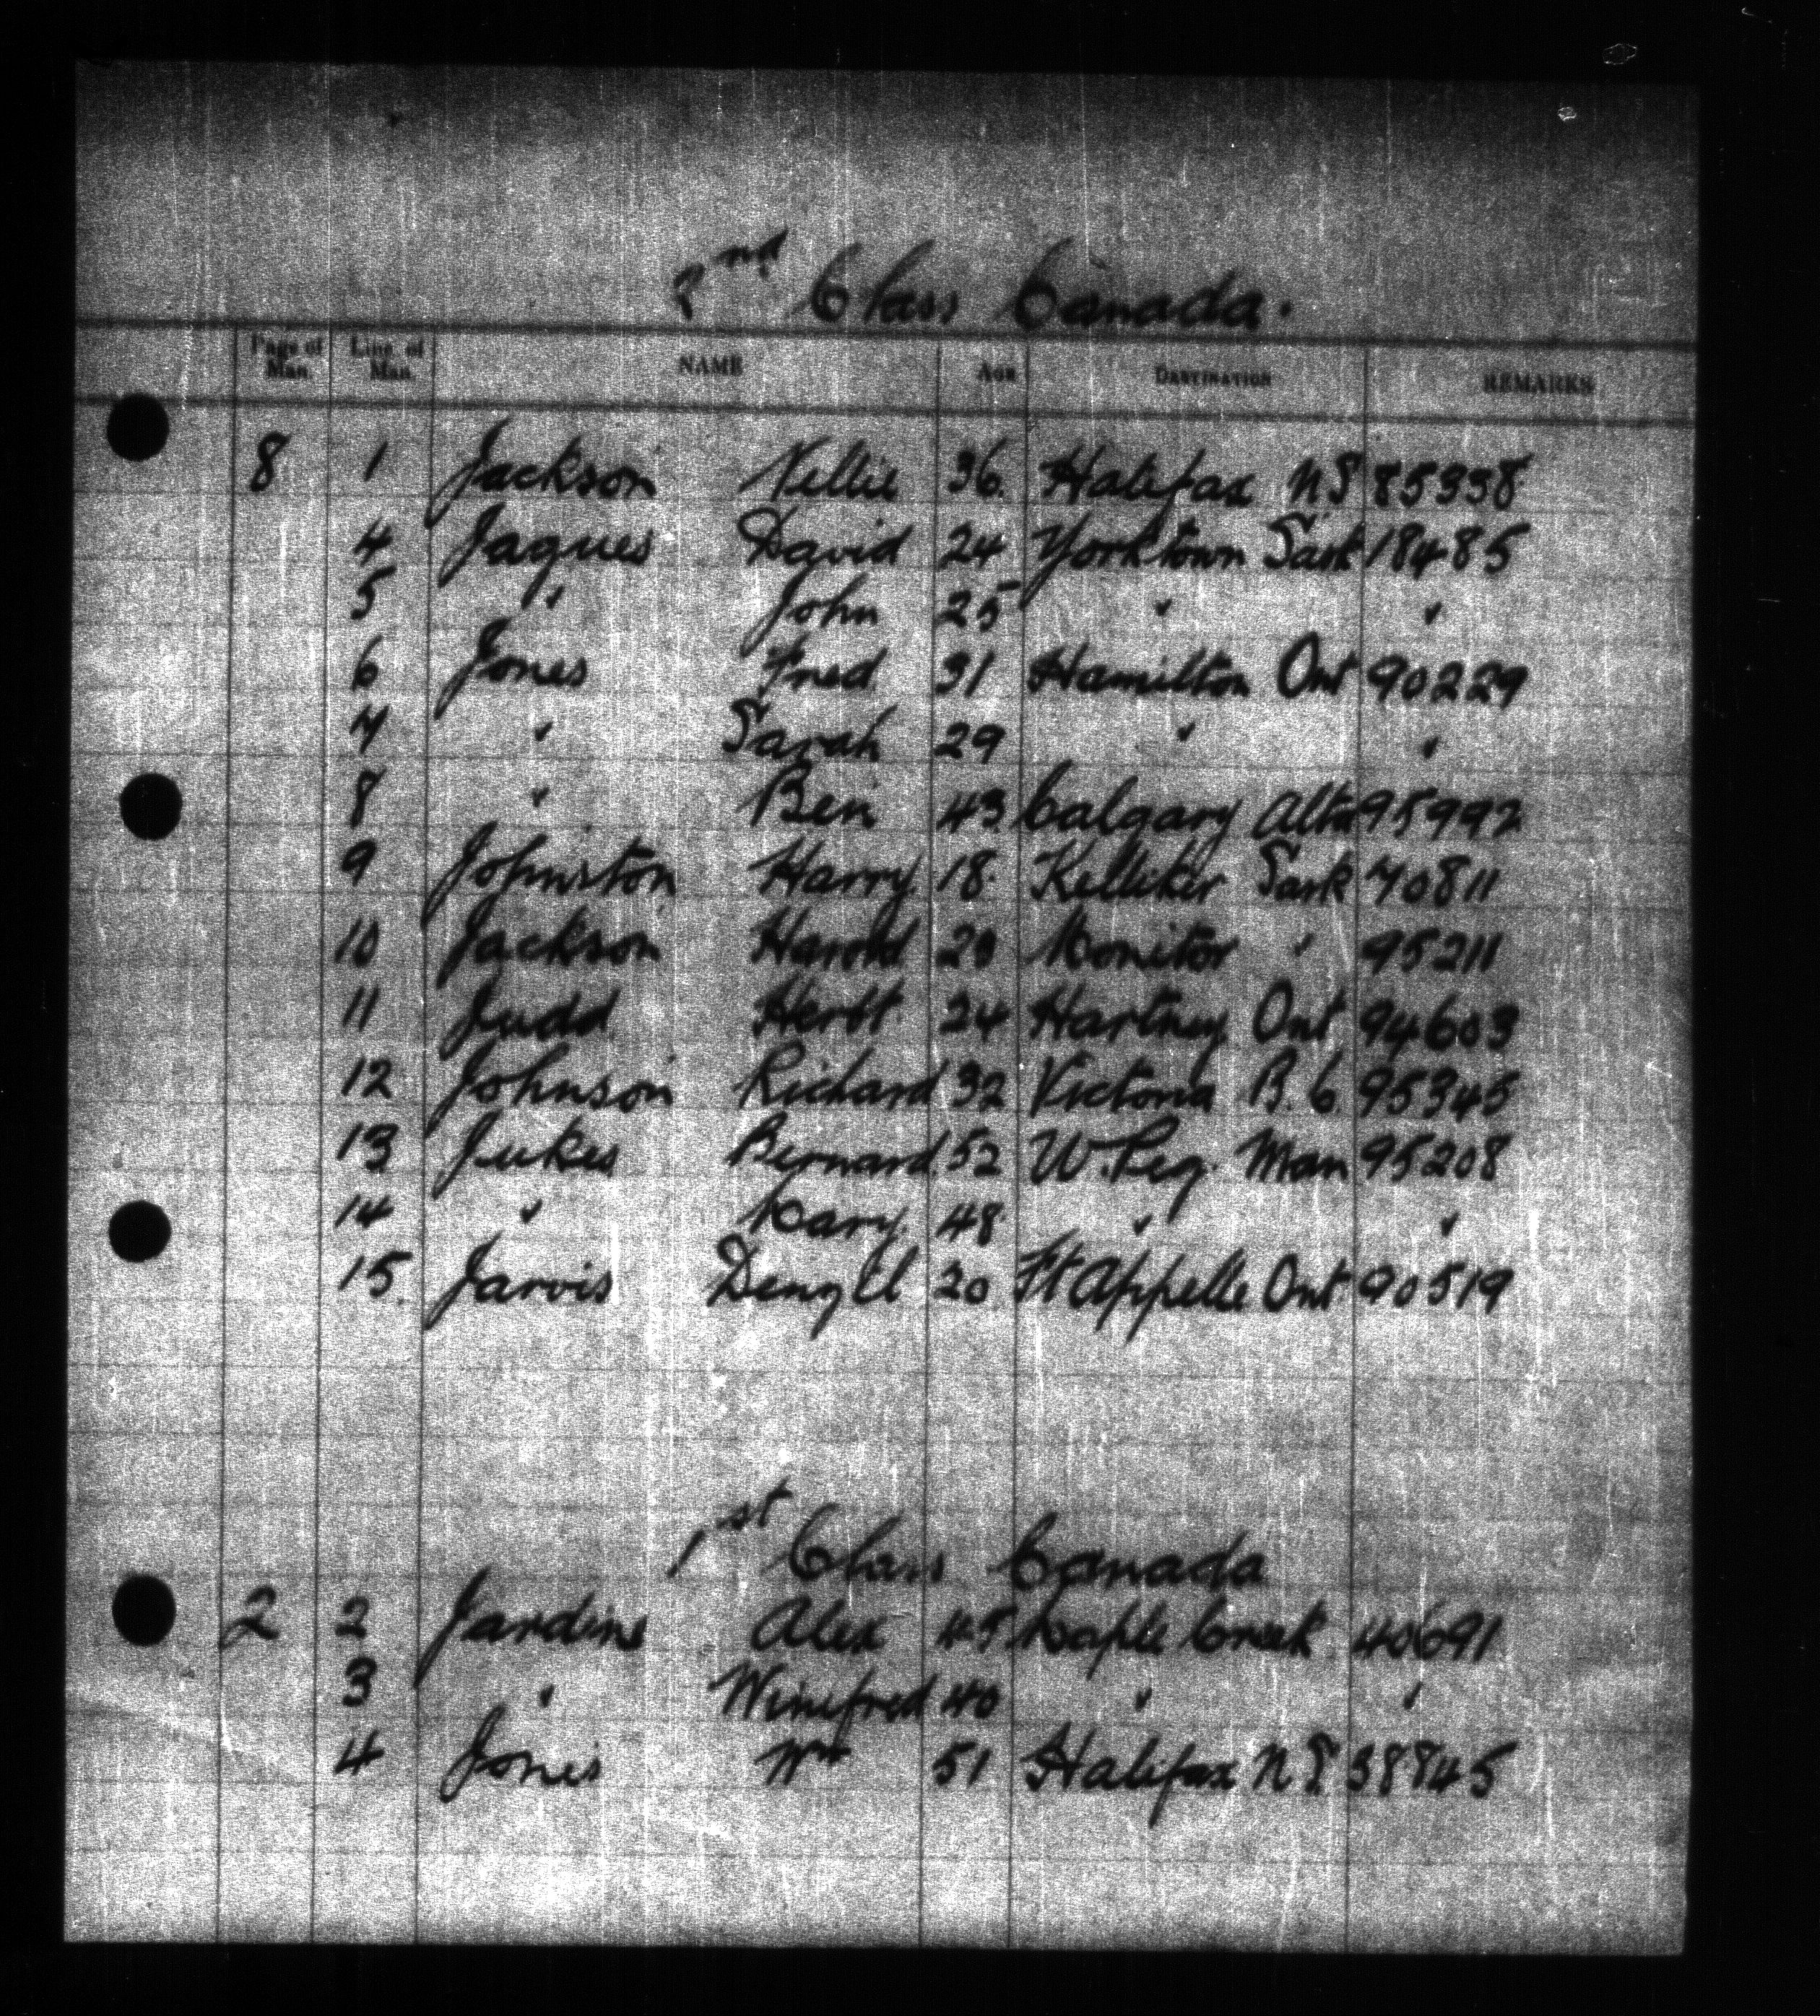 2nd Class Canada.
Page of Man. Line of Man. NAME AGE DESTINATION REMARKS
8 1 Jackson Nellie 36. Halifax NS 85338
4 Jaques David 24 Yorktown Sask 18485
5 " John 25 " "
6 Jones Fred 31 Hamilton Ont 90229
7 " Sarah 29 " "
8 " Ben 43 Calgary Alta 95992
9 Johnston Harry 18. Kelliher Sask 70811
10 Jackson Harold Monitor " 95211
11 Judd Herbt 24 Hartney Ont 94603
12 Johnson Richard 32 Victoria B.C. 95345
13 Jukes Bernard 52 W.Peg. Man 95208
14 " Mary. 48 " "
15. Jarvis Denzil 20 Ft Appelle Ont 90519
1st Class Canada
2 2 Jardine Alex 45 Maple Creek 40691
3 " Winifred 40 " "
4 Jones Wm 51 Halifax NS 38845